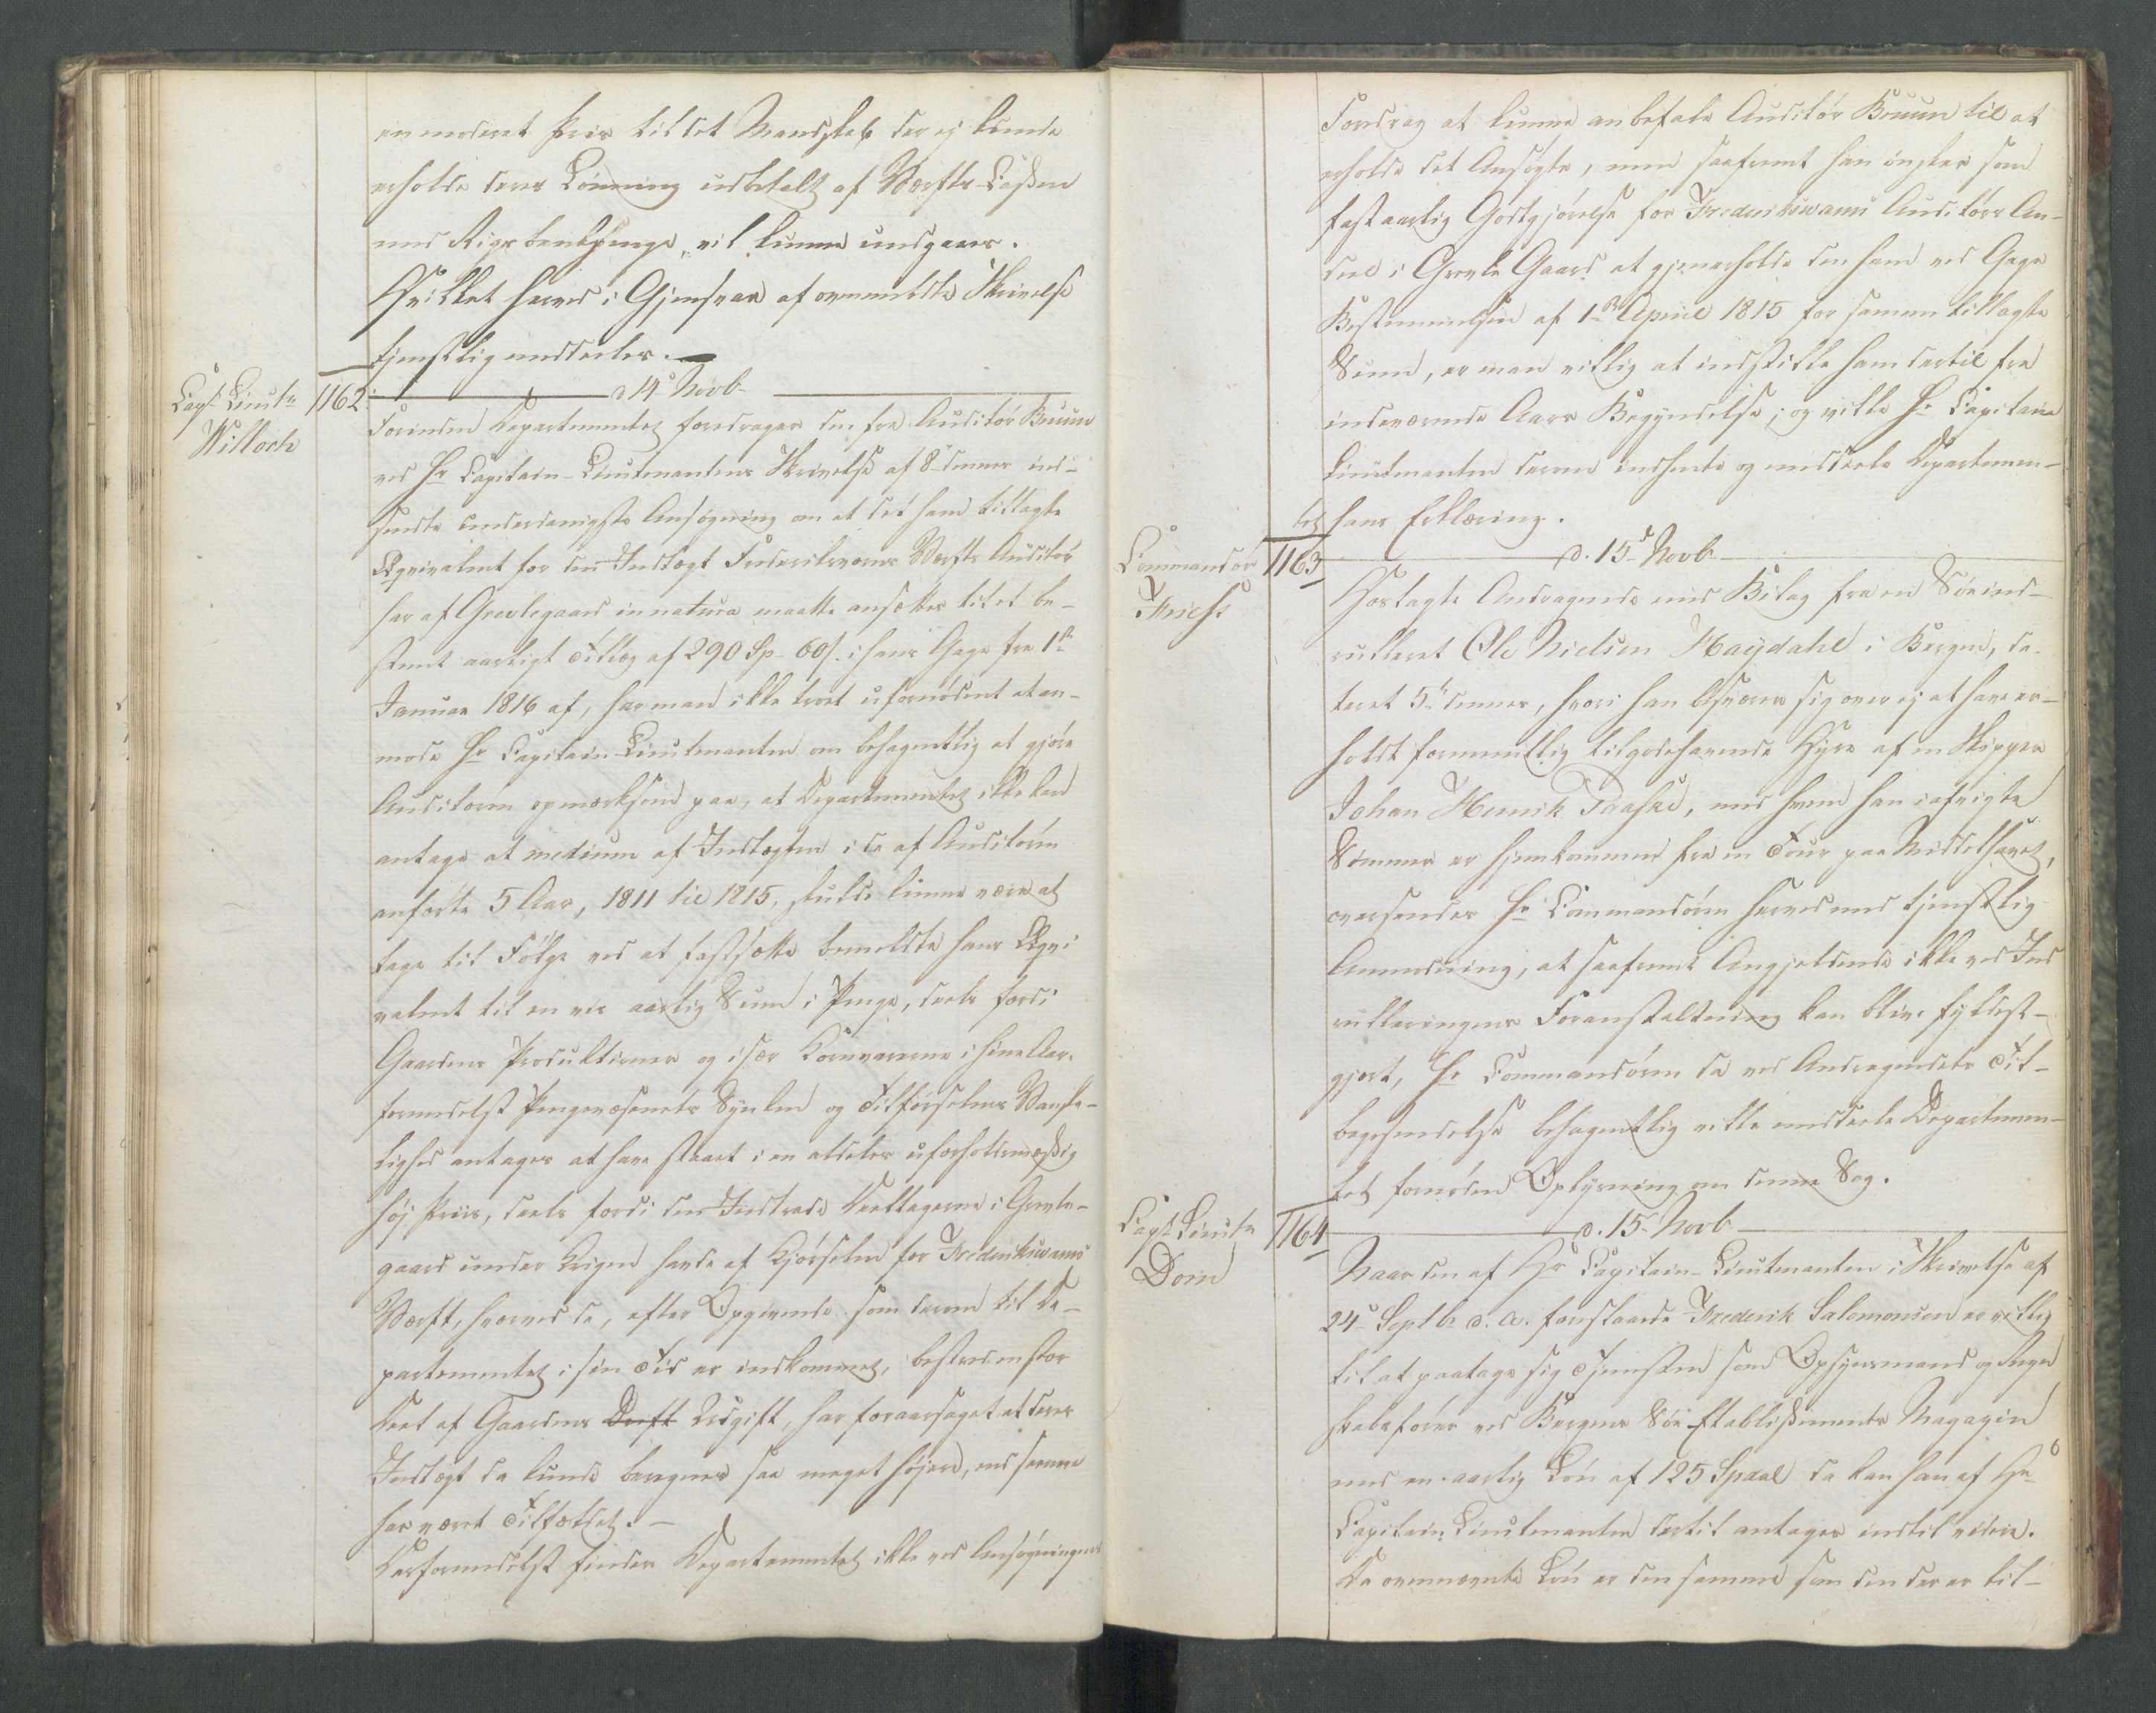 en moderat Priis til det Mandskab der ej kunde
erholde deres Lönning udbetalt af Værfts-Cassen
med Rigsbankpenge, vil kunne undgaaes.
Hvilket herved i Gjensvar af ovenmeldte Skrivelse
tjenstlig meddeeles.
Capt: Lieutn
Willoch
1162.
d 14de Novb
Forinden Departementet foredrager den fra Auditör Bruun
ved Hr Capitain-Lieutenantens Skrivelse af 8de dennes ind-
sendte underdanigste Ansögning om at det ham tillagte
Æqvivalent for den Indtægt Frederiksværns Værfts Auditör
har af Grevlegaard in natura maatte ansættes til et be-
stemt aarligt Tillæg af 290 Sp. 60 s. i hans Gage fra 1ste
Januar 1816 af, har man ikke troet ufornödent at an-
mode Hr Capitain-Lieutenanten om behagentlig at gjöre
Auditören opmærksom paa, at Departementet ikke kan
antage at medium af Indtægten i de af Auditören
anförte 5 Aar, 1811 til 1815, skulde kunne være at
tage til Fölge ved at fastsætte bemeldte hans Æqvi
valent til en vis aarlig Sum i Penge, deels fordi
Gaardens Produktioner og især Kornvarerne i hine Aar,
formedelst Pengevæsenets Synken og Tilförselens Vanske-
lighed antages at have staaet i en aldeles uforholdsmæssig
höj Priis, deels fordi den Indtræde Deeltagerne i Grevle-
gaard under Krigen havde af Kjörselen for Frederiksværns
Værft, hvorved de, efter Opgivende som derom til De-
partementet i sin Tid er indkommet, bestred en stor
Deel af Gaardens Drift Udgift, har foraarsaget at deres
Indtægt da kunde beregnes saa meget höjere, end samme
har været Tilfældet. -
Derformedelst finder Departementet ikke ved Ansögningens
Foredrag at kunne anbefale Auditör Bruun til at
erholde det Ansögte, men saafremt han önsker som
fast aarlig Godtgjörelse for Frederiksværns Auditörs An-
deel i Grevle Gaard at gjenerholde den ham ved Gage
Bestemmelsen af 1ste April 1815 for samme tillagte
Summ, er man villig at indstille ham dertil fra
indeværende Aars Begyndelse; og ville Hr Capitain
Lieutenanten derom indhente og meddeele Departemen-
tet hans Erklæring.
Commandör
Fries
1163
d. 15de Novb
Hoslagte Andragende med Bilag fra en Söeind-
rulleret Ole Nielsen Haÿdahl i Bergen, da-
teret 5te dennes, hvori han besværer sig over ej at have er-
holdt formeentlig tilgodehavende Hyre af en Skipper
Johan Henrik Traske, med hvem han i afvigte
Sommer er hjemkommen fra en Tour paa Middelhavet,
oversendes Hr Commandören herved med tjenstlig
Anmodning, at saafremt Angjeldende ikke ved Ind
rulleringens Foranstaltning kan blive fyldest-
gjort, Hr Commandören da ved Andragendets Til-
bagesendelse behagentlig ville meddeele Departemen-
tet fornöden Oplysning om denne Sag.
Capt: Lieutn
Dorn
1164
d. 15de Novb
Naar den af Hr Capitain-Lieutenanten i Skrivelse af
24de Septbr d. A. foreslaaede Frederik Salomonsen er villig
til at paatage sig Tjenesten som Opsynsmand og Regn
skabsförer ved Bergens Söe Etablissements Magazin
med en aarlig Lön af 125 Spdal, da kan han af Hr
Capitain Lieutenanten dertil antages indtil videre.
Da ovennævnte Lön er den samme som den der er til-